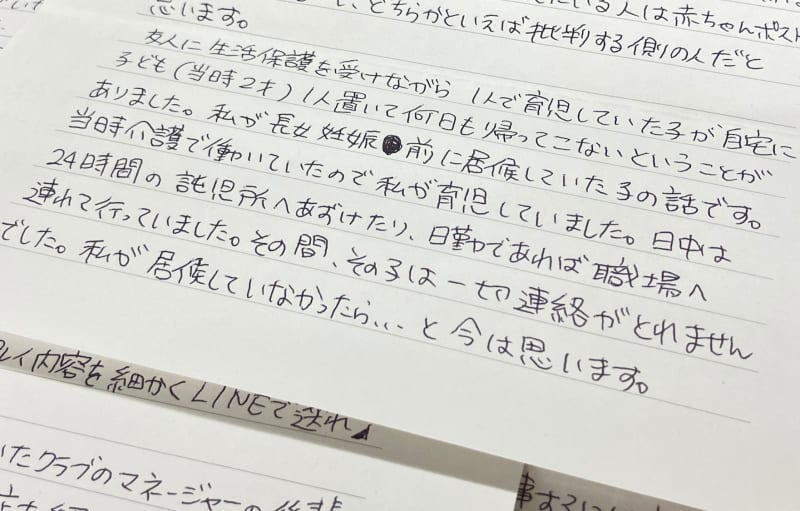 思います。
い、どちらかといえば批判する側の人だと
いる人は赤ちゃんポスト
友人に生活保護を受けながら 1人で育児していた子が自宅に
子ども(当時2才)1人置いて何日も帰ってこないということが
ありました。私が長女妊娠前に居候していた子の話です。
当時介護で働いていたので私が育児していました。日中は
24時間の託児所へあずけたり、日勤であれば職場へ
連れて行っていました。その間、その子は一切連絡がとれません
でした。私が居候していなかったら...と今は思います。
プレイ内容を細かくLINEで送れ
いたクラブのマネージャーの後輩